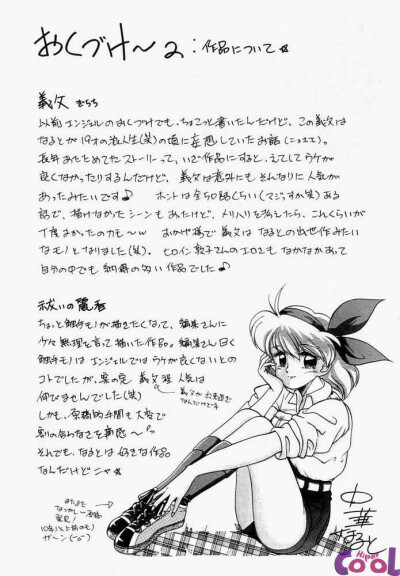 おくづけ〜2:作品について☆
義父 むらち
以前エンジェルのおくづけでも、ちょこっと書いたんだけど、この義父は
なるとが19才の浪人生(笑)の頃に妄想していたお話(ニョホホ)。
長年あたためてたストーリーって、いざ作品にすると、えてしてウケが
良くなかったりするんだけど、義父は意外にもそれなりに人気が
あったみたいです♪ ホントは全50話くらい(マジっすか笑)ある
話で、描けなかったシーンもあたけど、メリハリを考えたら、これくらいが
丁度よかったのカモ〜w おかげ様で義父はなるとの出世作みたい
なモノとなりました(笑)。ヒロイン敦子さんのエロさもなかなかあって
自分の中でも納得の匂い作品でした♪
ちょっと触手モノが描きたくなって、編集さんに
少々無理を言って描いた作品。編集さん曰く
触手モノはエンジェルではウケが良くないとの
コトでしたが、案の定 義父程 人気は
伸びませんでした(笑)
義父が出来過ぎ
なんだけどネ
しかも、実務的手間も大変で
割の合わなさを痛感〜
それでも、なるとは好きな作品
なんだけどニャ☆
またまた
発見!
10年以上前のモノ
ガーン
中華
なると
Hipa
COOL